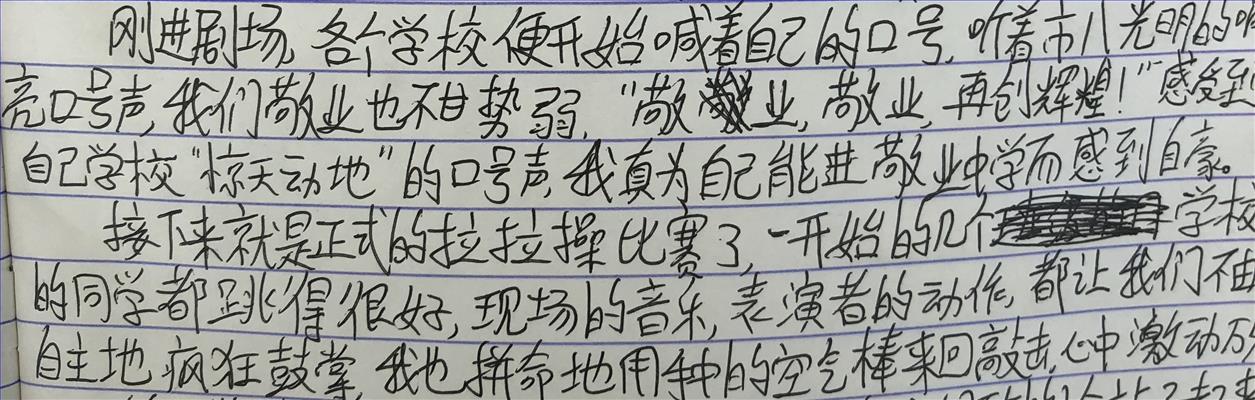 刚进剧场,各个学校便开始喊着自己的口号,听着市八光明的响
亮口号声,我们敬业也不甘势弱,“敬业,敬业,再创辉煌!”感受到
自己学校“惊天动地”的口号声,我真为自己能进敬业中学而感到自豪。
接下来就是正式的拉拉操比赛了,一开始的几个学校
的同学都跳得很好,现场的音乐,表演者的动作,都让我们不由
自主地疯狂鼓掌,我也拼命地用手中的空气棒来回敲击,心中激动万